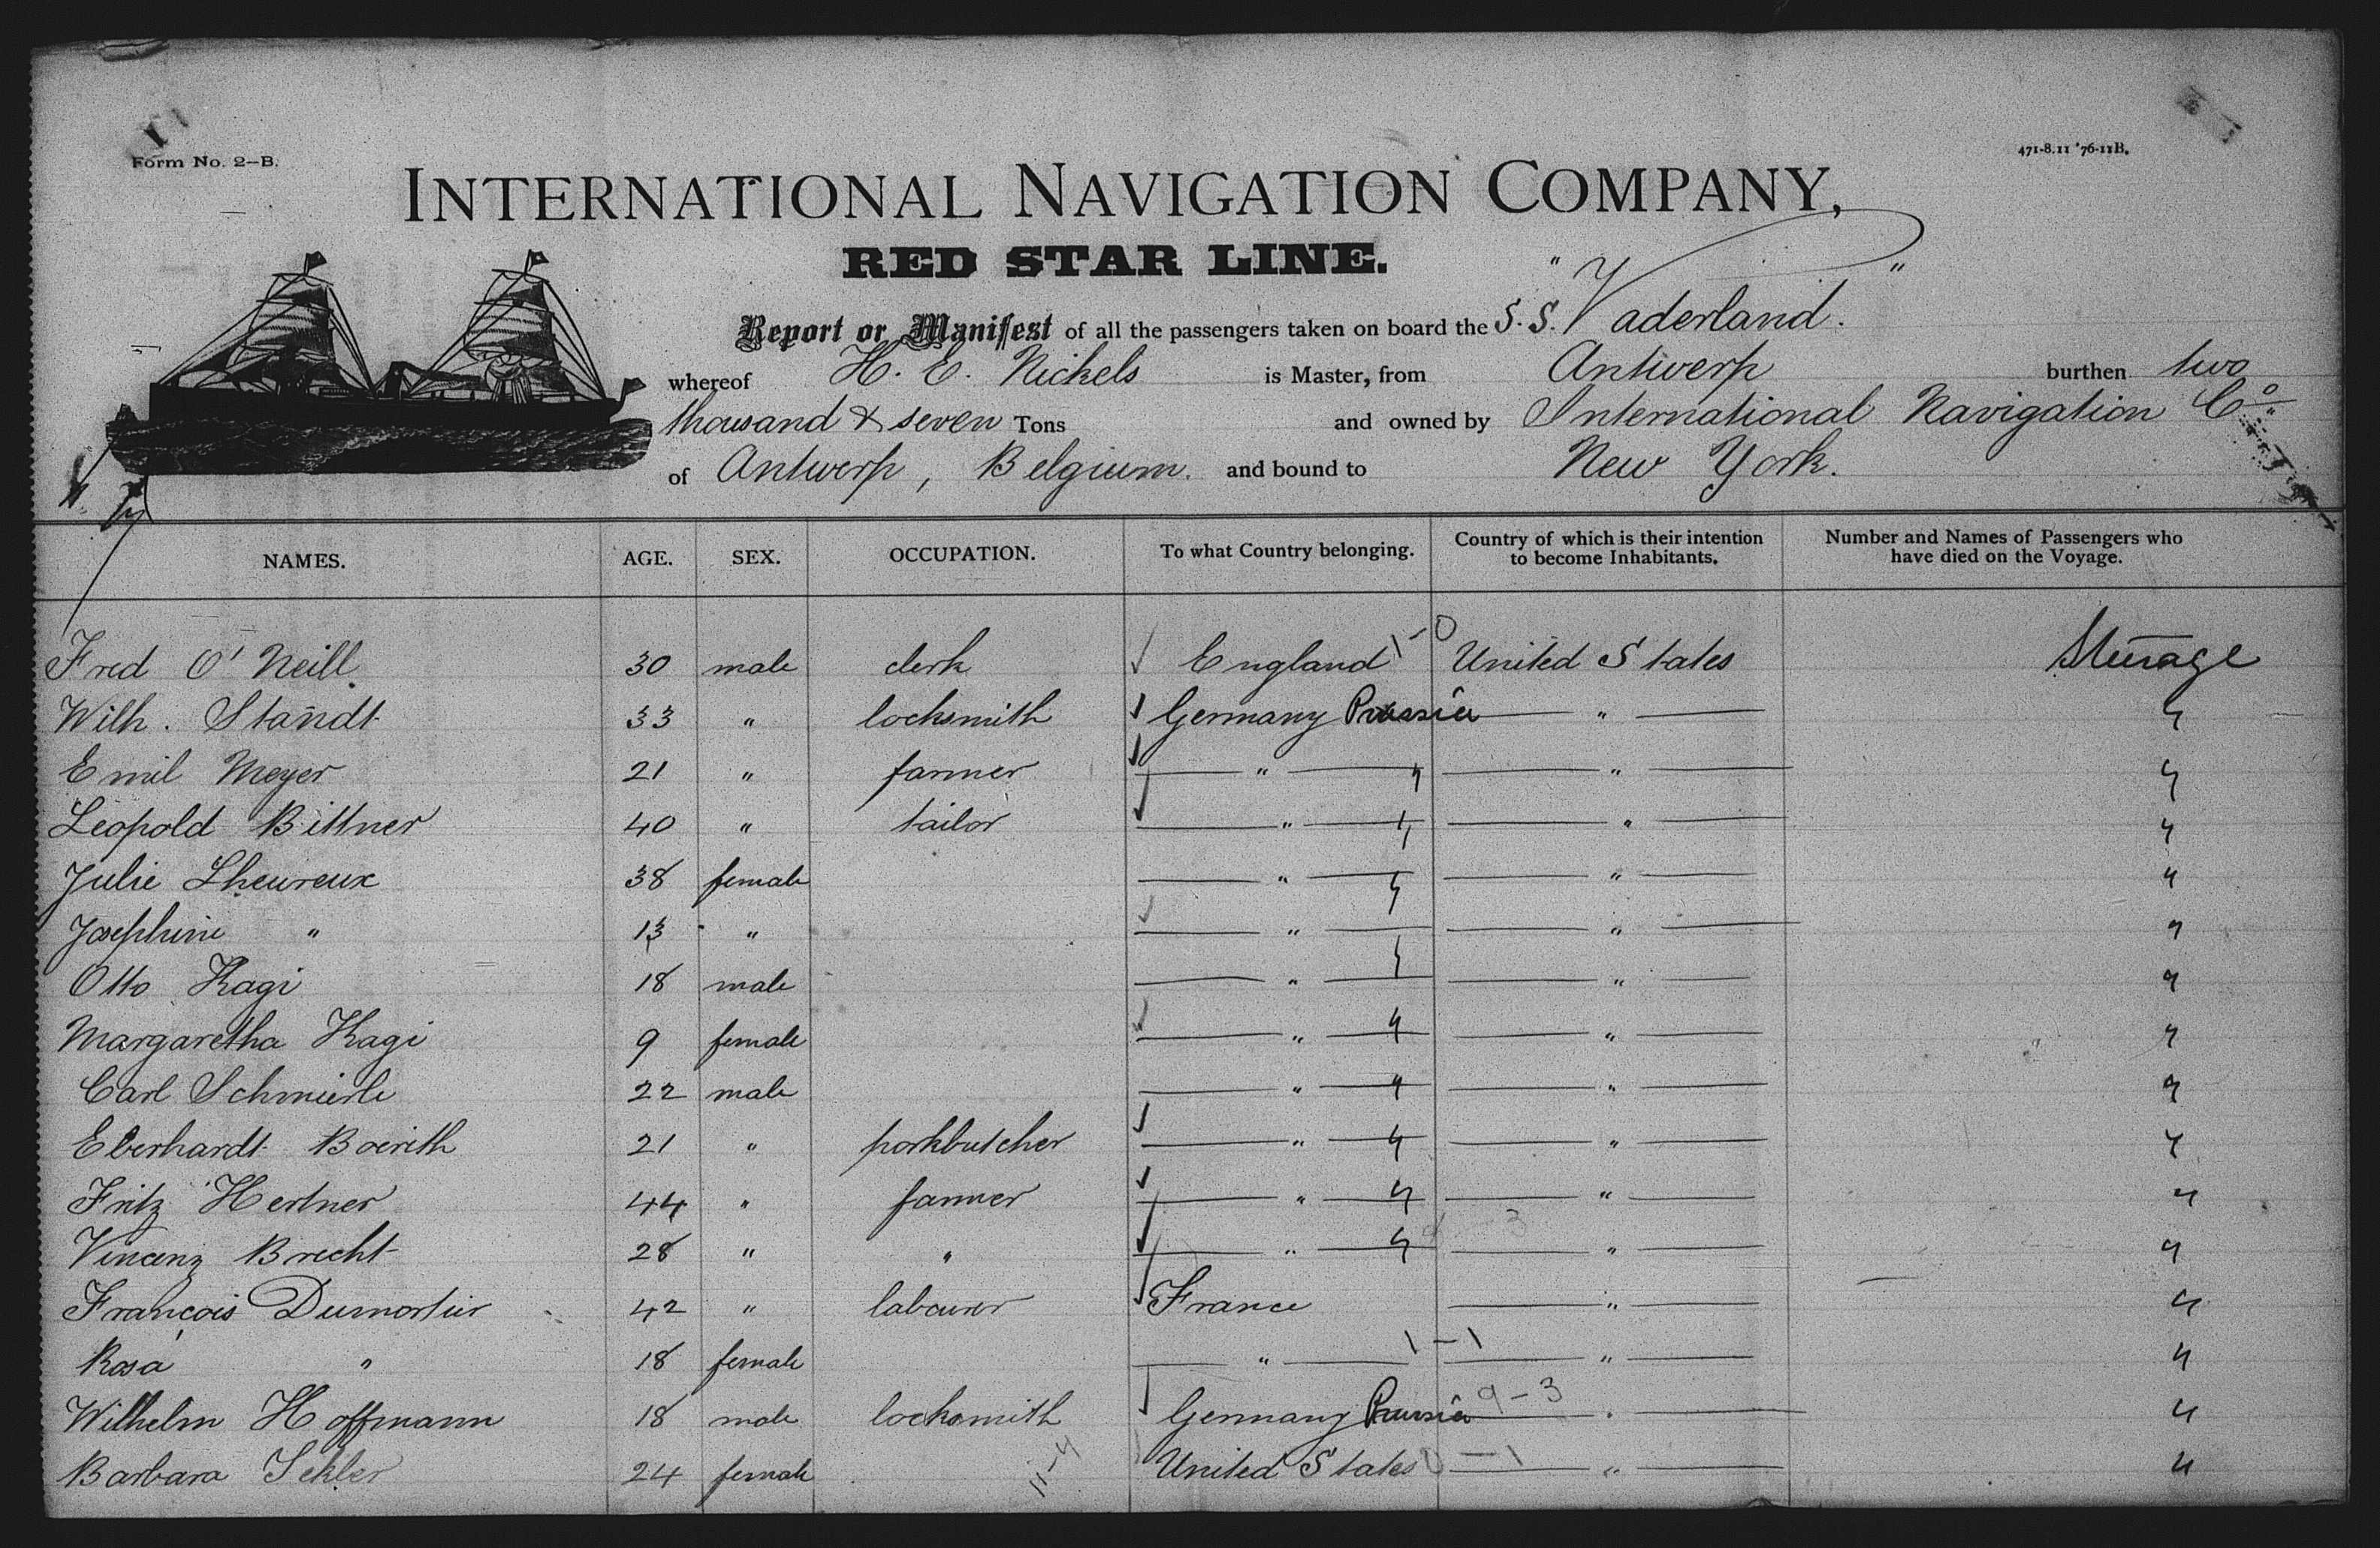 Form No. 2-B.
471-8.11 '76-11B.
INTERNATIONAL NAVIGATION COMPANY,
RED STAR LINE.
Report or Manifest of all the passengers taken on board the S. S. "Vaderland."
whereof H. E. Nickels is Master, from Antwerp burthen two
thousand & seven Tons and owned by International Navigation Co.
of Antwerp, Belgium. and bound to New York.
NAMES. AGE. SEX. OCCUPATION. To what Country belonging. Country of which is their intention to become Inhabitants. Number and Names of Passengers who have died on the Voyage.
Fred O'Neill 30 male clerk England 1-0 United States Steerage
Wilh. Standt 33 " locksmith Germany Prussia " "
Emil Meyer 21 " farmer " " " "
Leopold Bittner 40 " tailor " " " "
Julie Lheureux 38 female " " " "
Josephine " 13 " " " " "
Otto Kagi 18 male " " " "
Margaretha Kagi 9 female " " " "
Carl Schmierle 22 male " " " "
Eberhardt Boerith 21 " porkbutcher " " " "
Fritz Hertner 44 " farmer " " " "
Vincenz Brecht 28 " " " " " "
François Dumortier 42 " labourer France " "
Rosa " 18 female " 1-1 " "
Wilhelm Hoffmann 18 male locksmith Germany Prussia 9-3 " "
Barbara Sekler 24 female 11-4 United States 0-1 " "